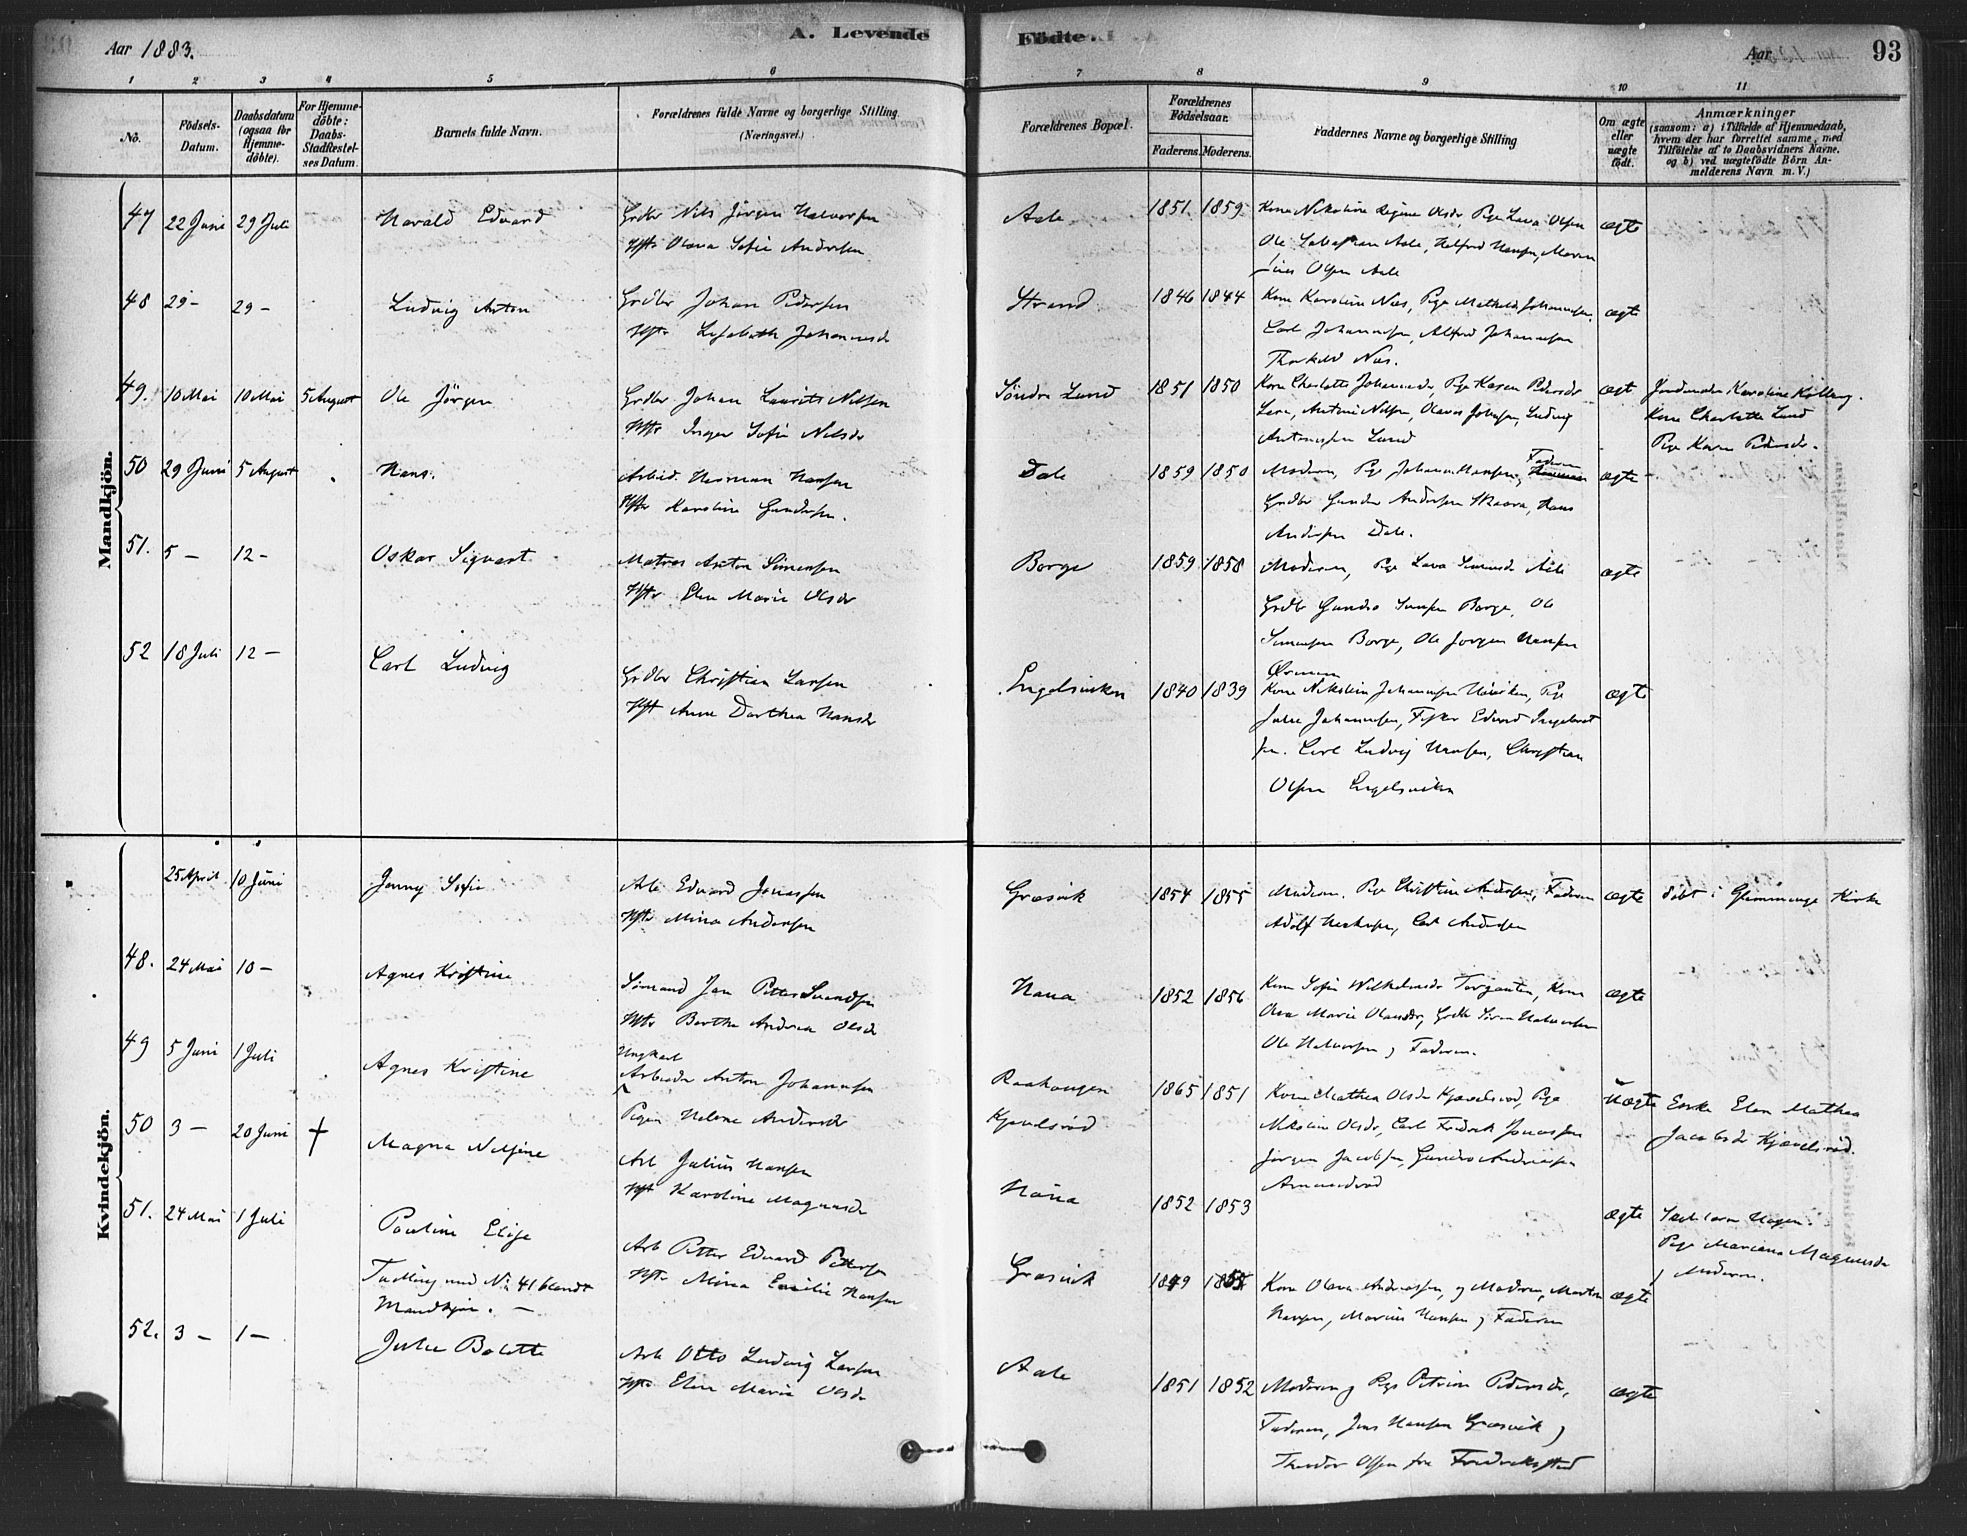 Aar 1883.
A. Levende
Födte.
Aar
93
1 2 3 4 5 6 7 8 9 10 11
No.
Födsels-
Datum.
Daabsdatum
(ogsaa for
Hjemme-
döbte).
For Hjemme-
döbte:
Daabs-
Stadfæstel-
ses Datum.
Barnets fulde Navn.
Forældrenes fulde Navne og borgerlige Stilling
(Næringsvei.)
Forældrenes Bopæl.
Forældrenes
Födselsaar.
Faderens. Moderens.
Faddernes Navne og borgerlige Stilling
Om ægte
eller
uægte
födt.
Anmærkninger
(saasom: a) i Tilfælde af Hjemmedaab,
hvem der har forrettet samme, med
Tilföielse af to Daabsvidners Navne.
og b) ved uægtefödte Börn An-
melderens Navn m. V.)
Mandkjön.
47 22 Juni 29 Juli Harald Edvard Grdbr Nils Jörgen Halvorsen
Hstr Olava Sofie Andersen
Aale 1851. 1859. Kone Nikoline Regine Olsdr, Pige Lava Olsen
Ole Aale, Hansen, Maren
Olsen Aale
ægte
48 29 – 29 – Ludvig Anton Grdbr Johan Pedersen
Hstr Johannesdr
Strand 1846 1844 Kone Karoline Næs, Pige Mathilde Johannesen,
Carl Johannesen, Alfred Johannesen
Thorkild Næs.
ægte
49. 10 Mai 10 Mai 5 August Ole Jörgen Grdbr Johan Laurits Nilsen
Hstr Inger Sofie Nilsdr
Söndre Lund 1851 1850 Kone Charlotte Johannesdr, Pige Karen Pedersdr
Antoni Nilsen, Ludvig
Antonisen Lund
ægt Jordmoder Karoline
Kone Charlotte Lund
Pige Karen Pedersdr.
50 29 Juni 5 August Hans. Arbeid. Herman Hansen
Hstr Karoline Gundersen.
Dale 1859 1850 Moderen, Pige Johanne Hansen, Faderen
Grdbr Gunder Andersen Skaara, Hans
Andersen Dale.
ægte
51. 5 – 12 – Oskar Sigvart Matros Anton Simensen
Hstr Elen Marie Olsdr
Borge 1859 1858 Moderen, Pige Lava Simensdr Aale
Grdbr Borge, Ole
Simensen Borge, Ole Jörgen Hansen
ægte
52 18 Juli 12 – Carl Ludvig Grdbr Christian Larsen
Hst Anne Dorthea Hansdr
Engelsviken 1840 1839 Kone Johannesen Pige
Julie Johannesen, Fisker Edvard Ingebret
sen. Carl Ludvig Hansen, Christian
Olsen Engelsviken
ægte
Kvindekjön.
25 April 10 Juni Jenny Sofie Arb Edvard Jonassen
Hstr Mina Andersen
Græsvik 1854 1855 Moderen. Pige Christine Andersen, Faderen
Adolf Carl Andersen
ægte döbt i Glemminge Kirke
48. 24 Mai 10 – Agnes Kristine Sömand Jan Petter Svendsen
Hstr Berthe Andrea Olsdr
Hana 1852 1856 Kone Sofie Wilhelmsdr Torgauten, Kone
Marie Olausdr, Grdbr Sören Halvorsen
Ole Halvorsen, Faderen.
ægte
49 5 Juni 1 Juli Agnes Kristine Ungkarl
Arbeider Anton Johannesen
Pigen Helene Andersdr
Raahaugen
Kjævelsröd
1865 1851 Kone Mathea Olsdr Kjævelsröd, Pige
Nikoline Olsdr, Carl Fredrik Jonassen
Jörgen Jacobsen, Gundro Andreassen
uægte Enke Elen Mathea
Jacobsdr Kjævelsröd.
50 3 – 20 Juni † Magna Nilsine Arb Julius Hansen
Hst Karoline Magnusdr
Hana 1852 1853 ægte
Pige Mariane Magnusdr
Moderen.
51. 24 Mai 1 Juli Pauline Elise
Tvilling med No 41 blandt
Mandkjön. –
Arb Petter Edvard Pettersen
Hstr Mina Emilie Hansen
Græsvik 1849 Kone Olava Andreassen, Moderen, Morten
Hansen, Marius Hansen, Faderen
ægte
52. 3 – 1 – Julie Bolette Arb Otto Ludvig Larsen
Hstr Elen Marie Olsdr
Aale 1851 1852 Moderen, Pige Petrine Pedersdr,
Faderen, Jens Hansen Græsvik,
Theodor Olsen fra Fredrikstad
ægte